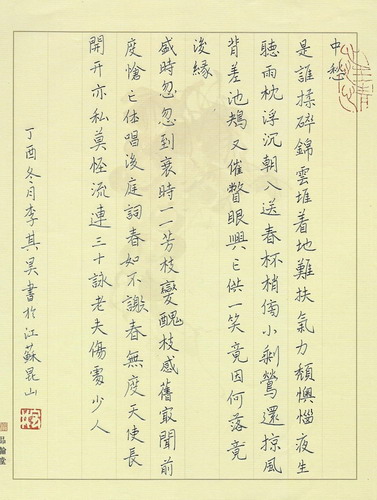 中愁
是誰揉碎錦雲堆着地難扶氣力頹懊惱夜生
聽雨枕浮沉朝入送春杯梢倘小剩鶯還掠風
背差池又催瞥眼興亡供一笑竟因何落竟
緣
盛時忽忽到衰時一一芳枝變醜枝感舊最聞前
度愴亡休唱後庭詞春如不謝春無度天使長
開亦私莫怪流連三十詠老夫傷處少人
丁酉冬月李其昊書於江蘇昆山